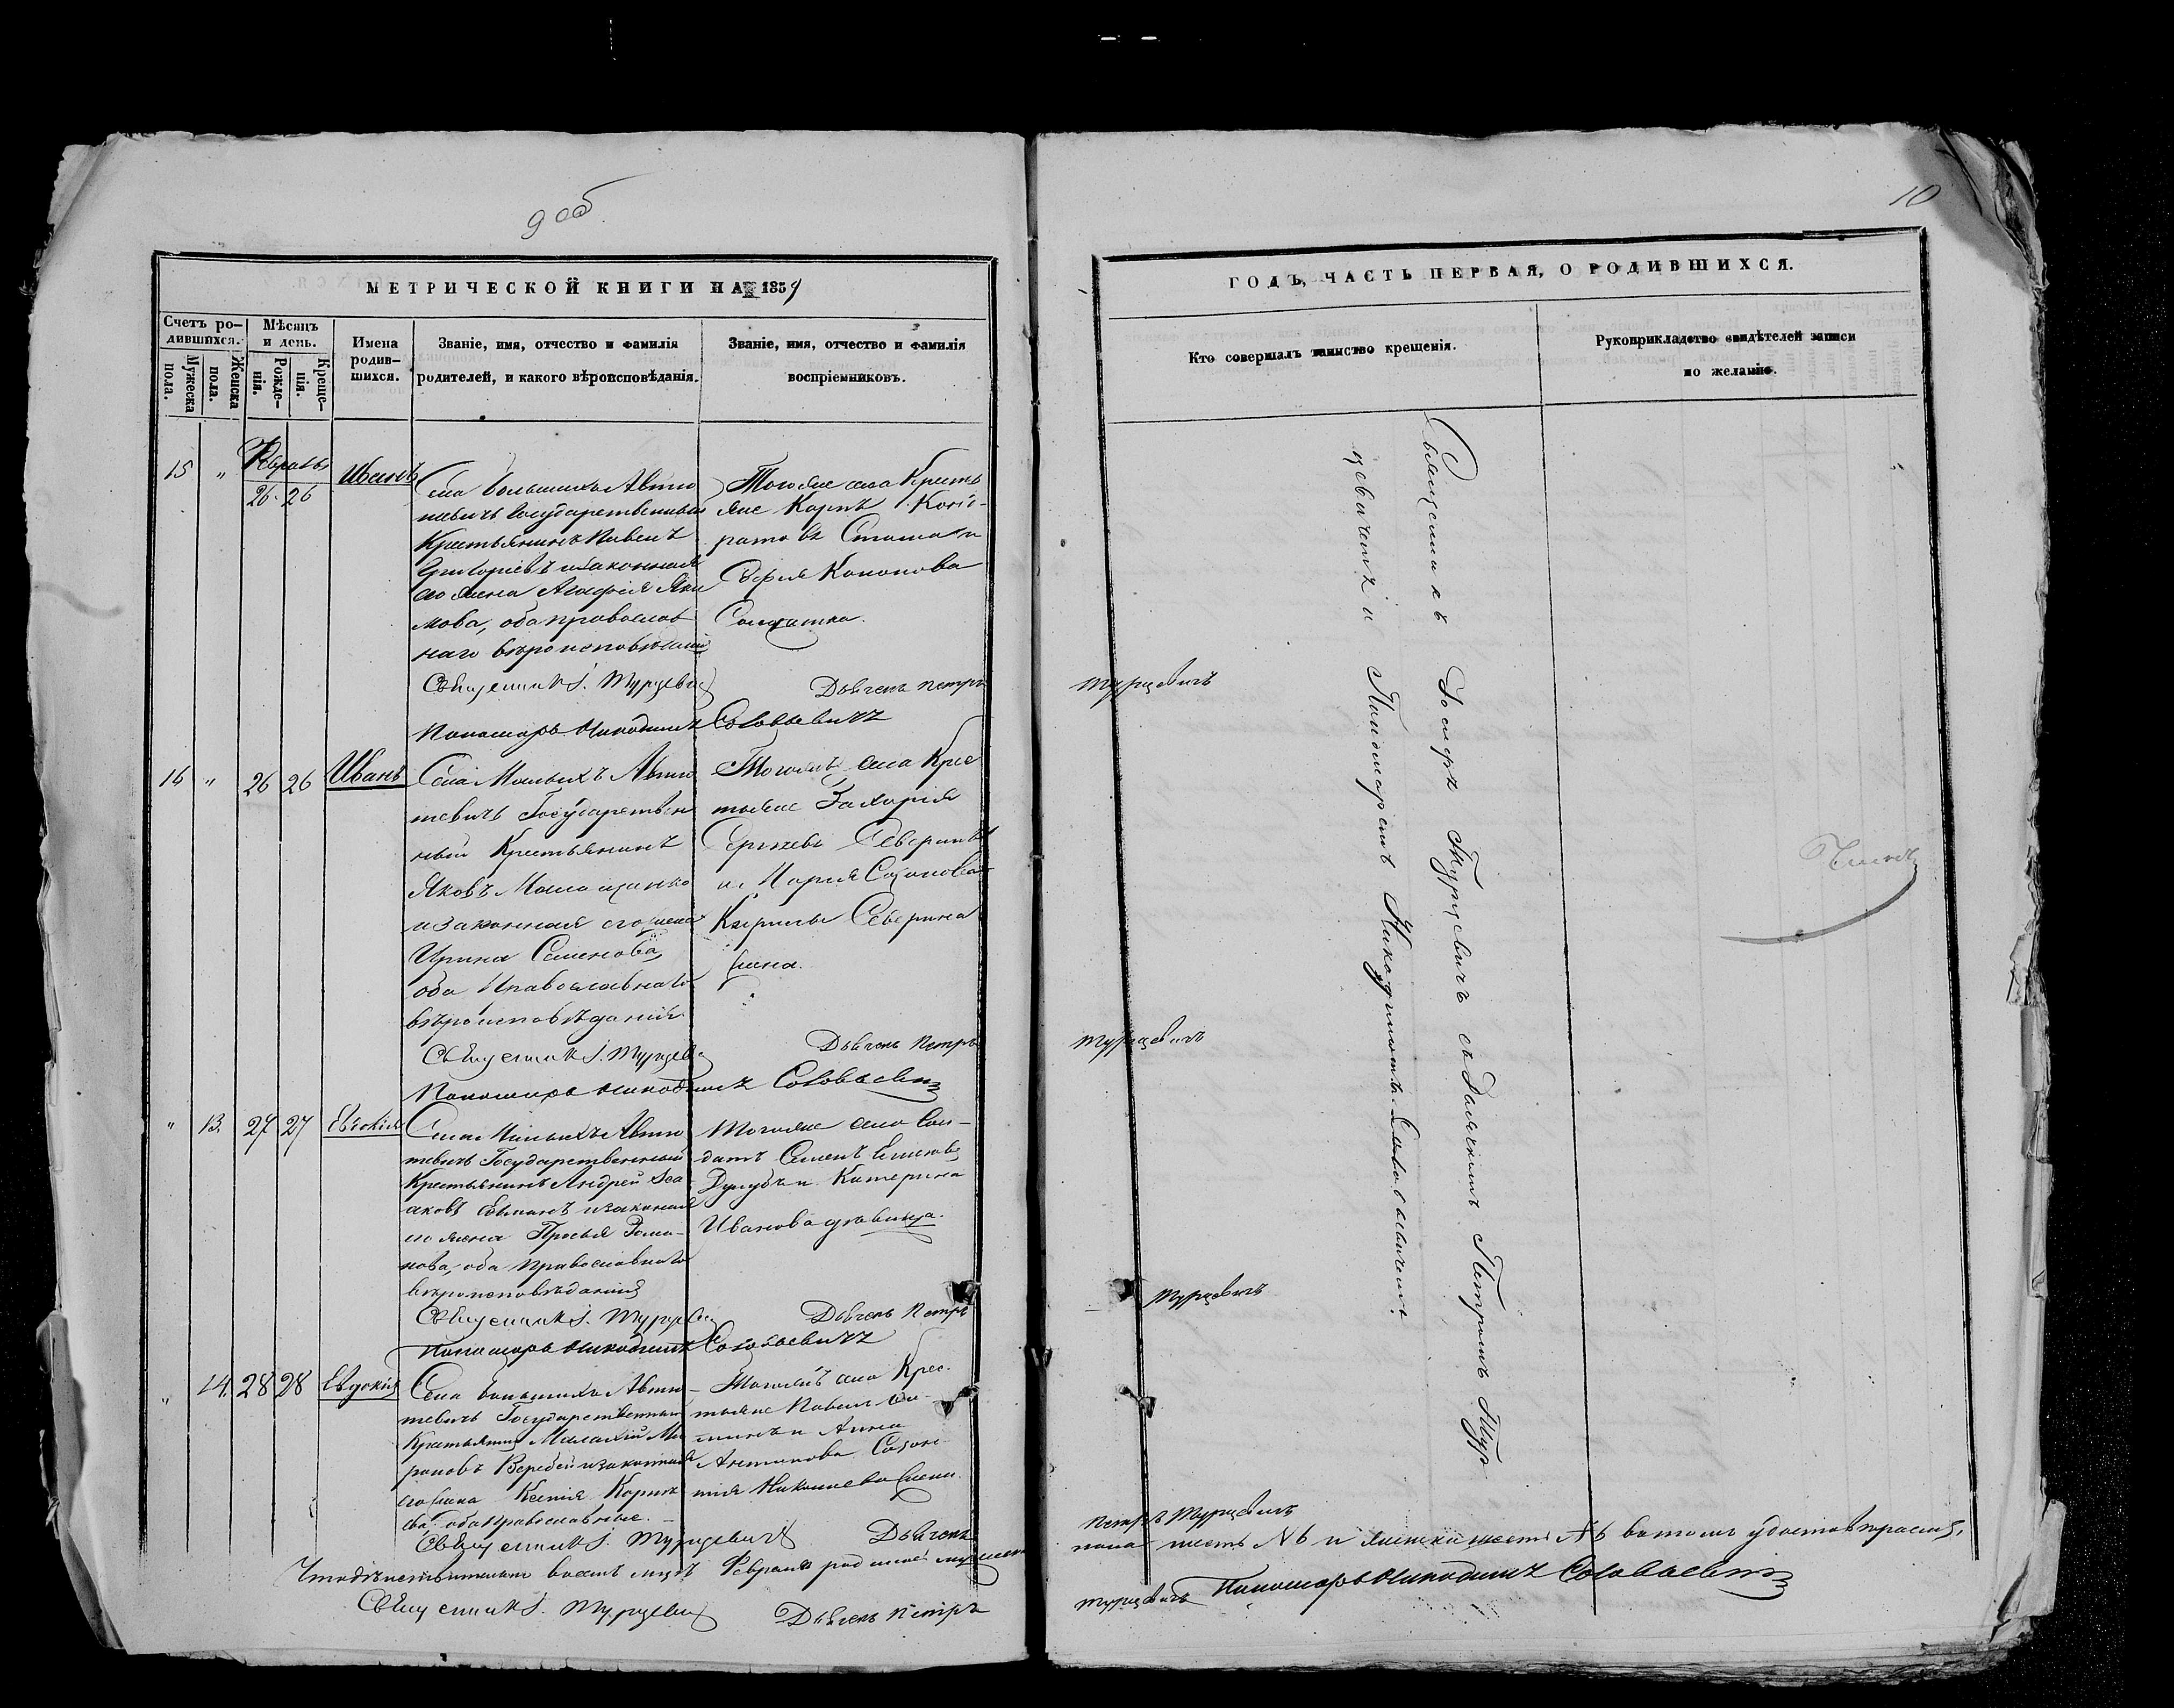 9 об.
МЕТРИЧЕСКОЙ КНИГИ НА 1859
Счетъ родившихся.
Мужеска пола.
Женска пола.
Мѣсяцъ и день.
Рожденія.
Крещенія.
Имена родившихся.
Званіе, имя, отчество и фамилія
родителей, и какого вѣроисповѣданія.
Званіе, имя, отчество и фамилія
воспріемниковъ.
15 " Февраль 26 26 Иванъ
Села большихъ Авти
невичъ Государственный
Крестьянинъ Павелъ
Григоріевъ и законная
его жена Агафія Яки
мова, оба православ
наго вѣроисповѣданій
Тогоже села Кресть
яне Карпъ
и
Софія Кононова
Священникъ І. Турцевич
Дьячекъ Петръ
Пономарь Никодимъ Соловьевичъ
16 " 26 26 Иванъ
Села Малыхъ Авти
невичъ Государствен
ный Крестьянинъ
Яковъ
и законная его жена
Ирина Семенова,
оба Православнаго
вѣроисповѣданія
Тогожъ села Крес
тьяне Захарія
Сергѣевъ Северинъ
и Марія Созонова
Кирилы Северина
жена.
Священникъ І. Турцеви
Дьячекъ Петръ
Пономарь Никодимъ Соловьевич
" 13. 27 27 Евдокія
Села Малыхъ Авти
невичъ Государственный
Крестьянинъ Андрей Іса
аковъ и законная
его жена Просья Рома-
нова, оба православнаго
вѣроисповѣданія
Тогоже села Сол-
датъ Семенъ
и Катерина
Иванова дѣвица.
Священникъ І. Турцеви
Дьячекъ Петръ
Пономарь Никодимъ Соловьевичъ
" 14. 28 28 Евдокія
Села большихъ Авти-
невичъ Государственный
Крестьянинъ Малахій Ми
роновъ Воробей и законная
его жена Ксенія Карпи
ева оба православные.
Тогожъ села Крес-
тьяне Павелъ
и Анна
Антонова
жена.
Священникъ І. Турцевичъ
Дьячекъ
Что дѣйствительно въ семъ мцѣ Февралѣ родилось мужеска
Священникъ І. Турцевич
Дьячекъ Петръ
10
ГОДЪ, ЧАСТЬ ПЕРВАЯ, О РОДИВШИХСЯ.
Кто совершалъ таинство крещенія.
Рукоприкладство свидѣтелей записи
по желанію.
Священникъ Іосифъ Турцевичъ съ Дьячкомъ Петромъ Тур
цевичемъ и Пономаремъ Никодимомъ Соловьевичемъ
Турцевичъ
Турцевичъ
Турцевичъ
Петръ Турцевичъ
пола шесть №6 и женска шесть №6 въ томъ удостовѣряемъ,
Турцевичъ Пономарь Никодимъ Соловьевич